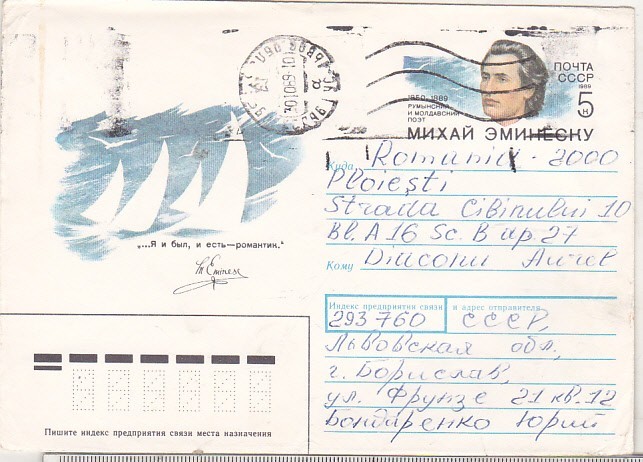 ПОЧТА
СССР
1989
5 к
1850-1889
РУМЫНСКИЙ
И МОЛДАВСКИЙ
ПОЭТ
МИХАЙ ЭМИНЕСКУ
Куда Romania - 2000
Ploiești
Strada Cibinului 10
Bl. A 16 Sc. B ap. 27
Кому Diaconu Aurel
„...Я и был, и есть—романтик.“
M. Eminescu
Индекс предприятия связи и адрес отправителя
293760 СССР,
Львовская обл,
г. Борислав,
ул. Фрунзе 21 кв. 12
Бондаренко Юрий
Пишите индекс предприятия связи места назначения